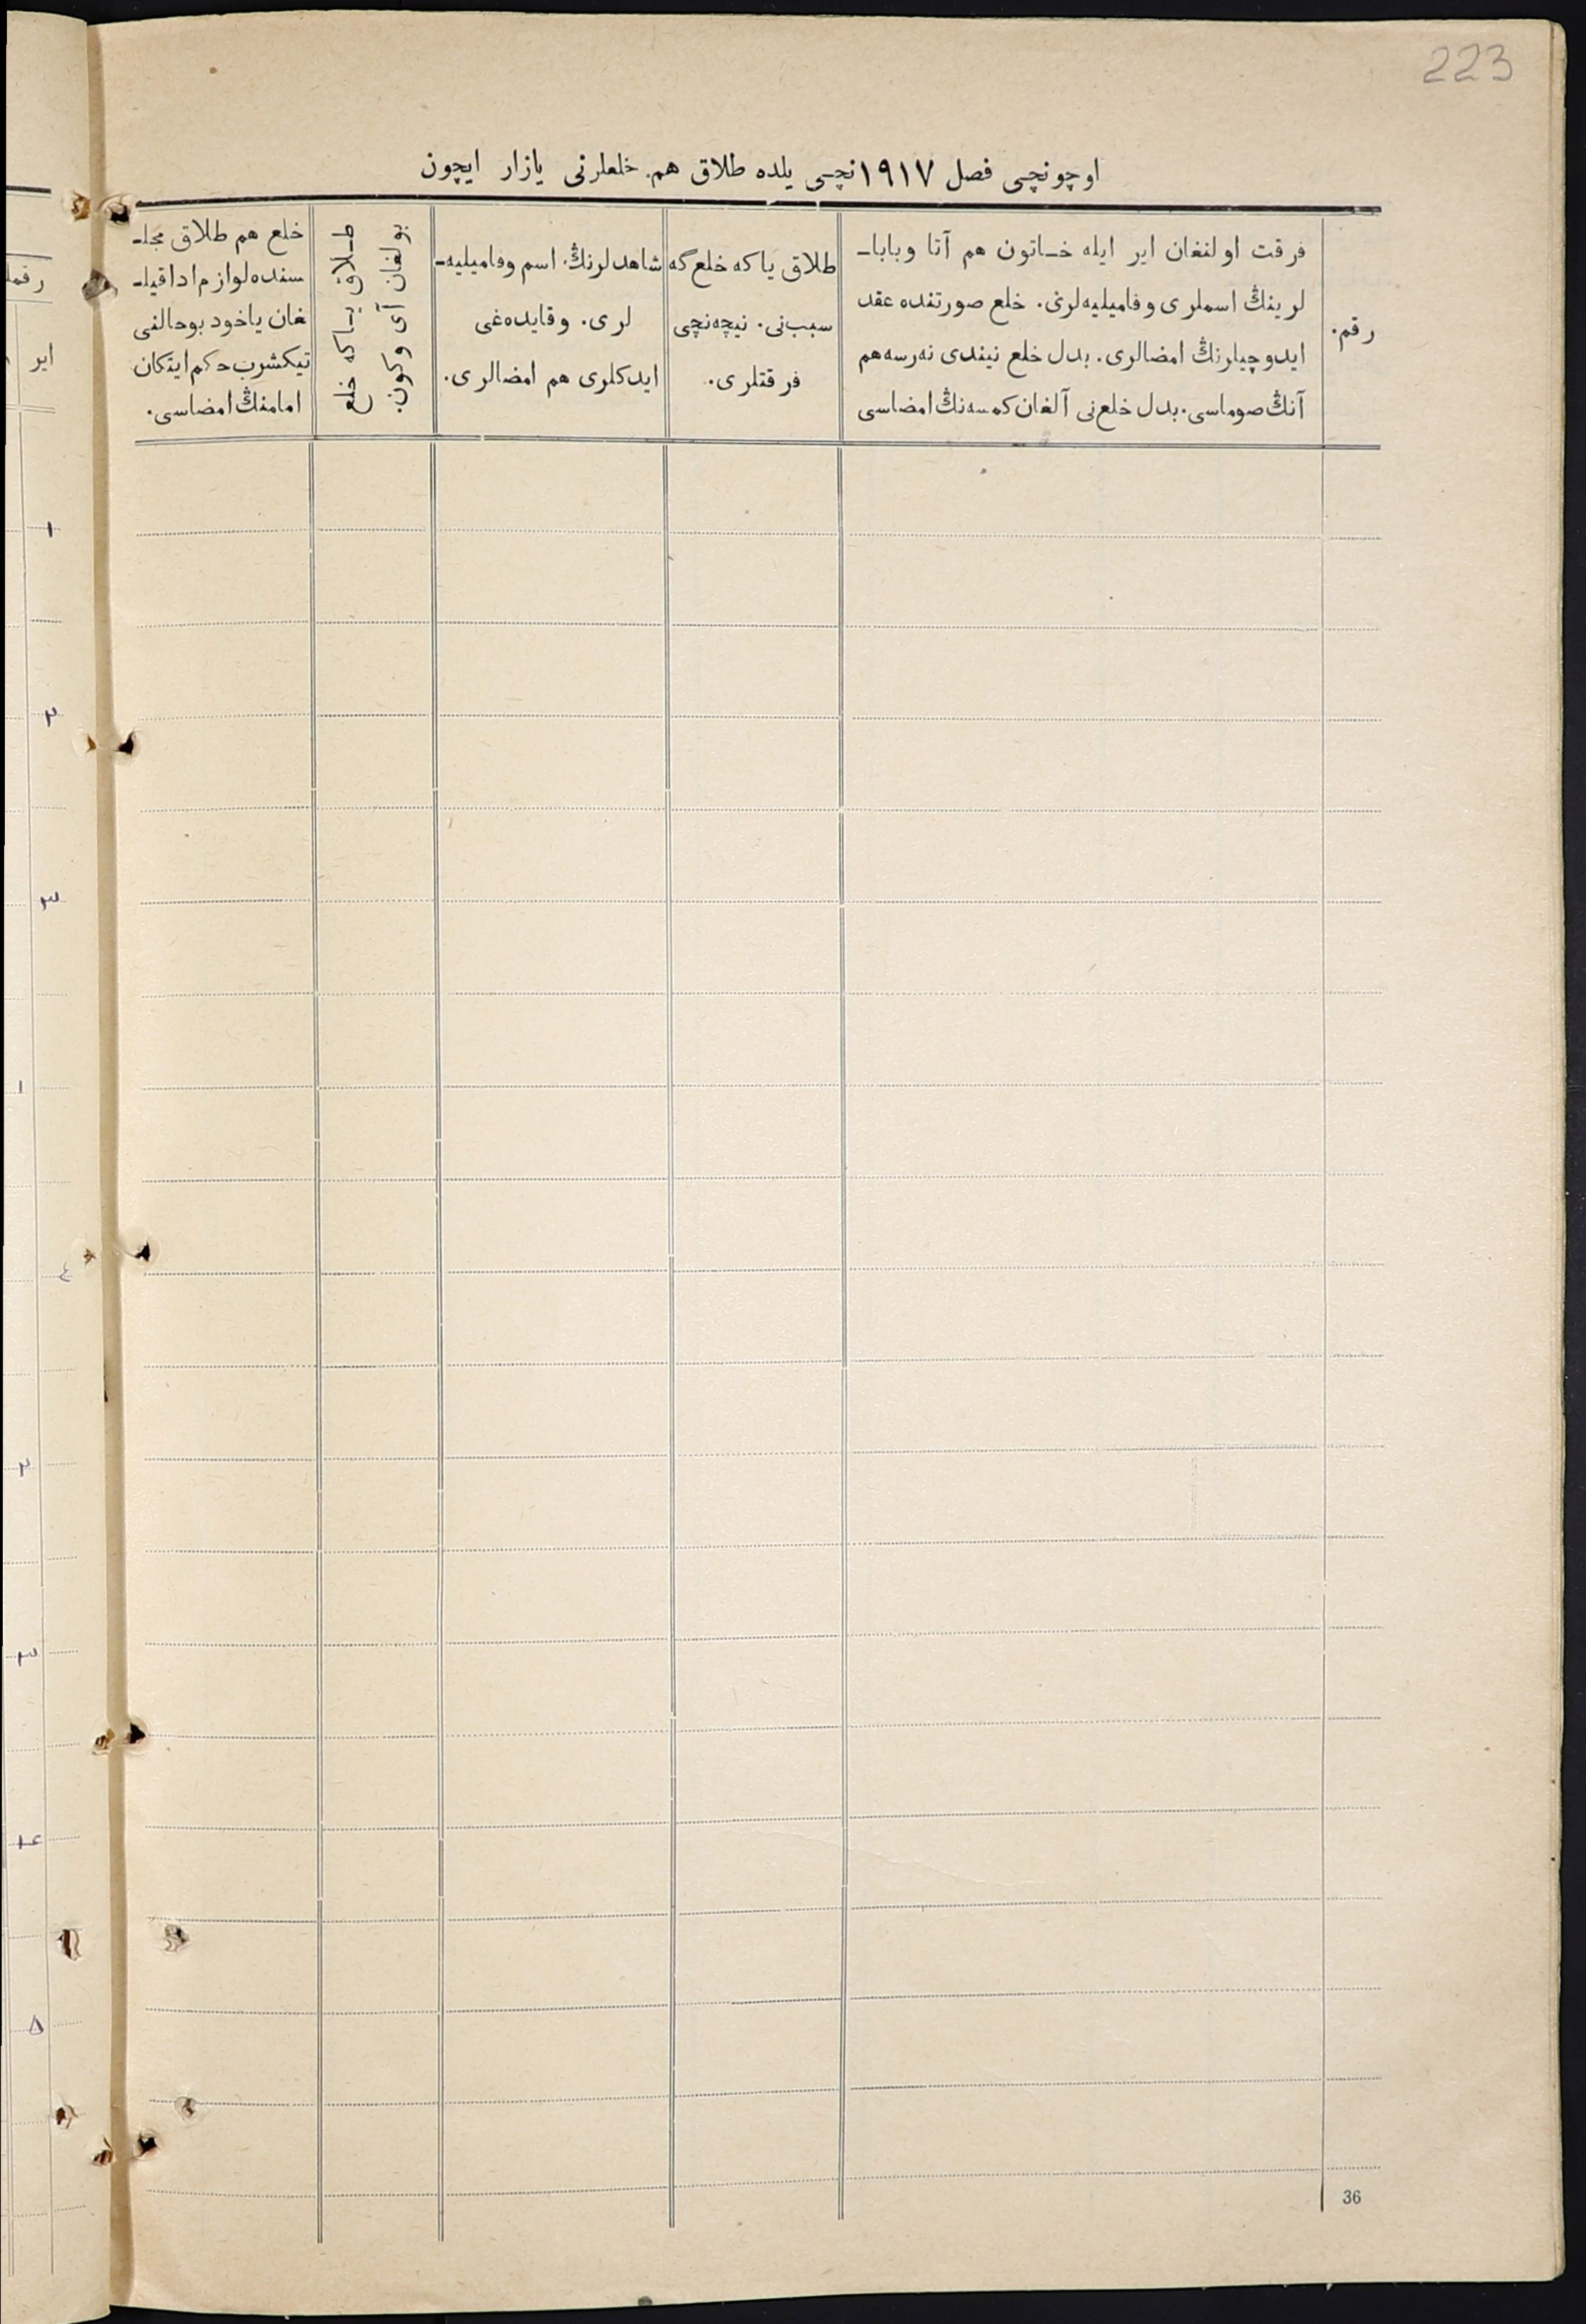 223
اوچونچی فصل ١٩١٧نچی يلده طلاق هم خلعلرنی يازار ايچون
رقم.
فرقت اولنغان اير ايله خـاتون هم آتا وبابا-
لرينڭ اسملری وفاميليه‌لری. خلع صورتنده عقد
ايدوچيلرنڭ امضالری. بدل خلع نيندی نه‌رسه هم
آنڭ صوماسی. بدل خلعنی آلغان كمسه‌نڭ امضاسی
طلاق ياكه خلع‌گه
سبب‌نی. نيچه‌نچی
فرقتلری.
شاهدلرنڭ اسم وفاميليه-
لری. وقايده‌غی
ايدكلری هم امضالری.
طـلاق يـاكه خلع
بولغان آی وكون.
خلع هم طلاق مجلـ
سنده لوازم ادا قيلـ
غان ياخود بوحالنی
تيكشرب حكم ايتكان
امامنڭ امضاسی.
36
رقمـ
اير
١
٢
٣
١
٤
٢
٣
٤
٥